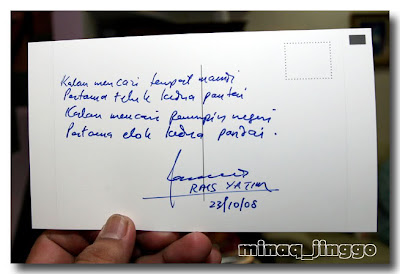 Kalau mencari tempat mandi
Pertama teluk kedua pantai
Kalau mencari pemimpin negeri
Pertama elok kedua pandai.
RAIS YATIM
23/10/08
minaq_jinggo